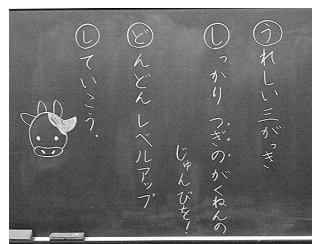 うれしい三がっき
しっかり つぎのがくねんの
じゅんびを!
どんどんレベルアップ
していこう。